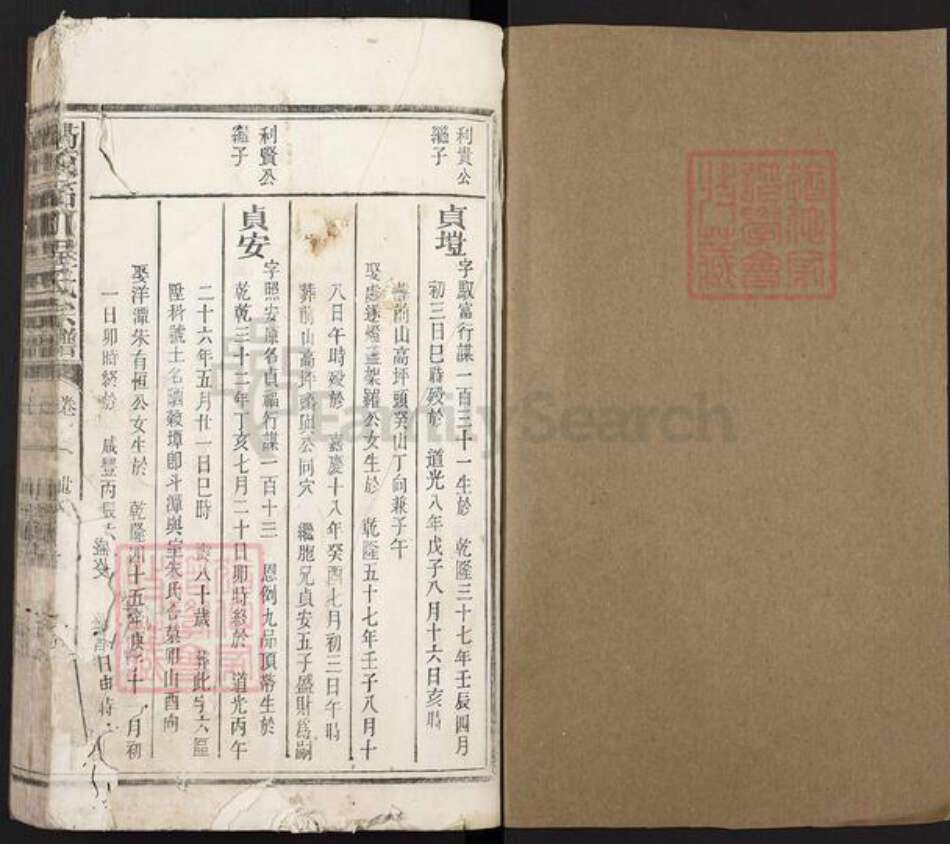 利貴公
繼子
貞塏
字馭富行謀一百三十一生於 乾隆三十七年壬辰四月
初三日巳時歿於 道光八年戊子八月十六日亥時
葬前山高坪頭癸山丁向兼子午
娶 羅公女生於 乾隆五十七年壬子八月十
八日午時歿於 嘉慶十八年癸酉七月初三日午時
葬前山高坪頭與公同穴 繼胞兄貞安五子盛財爲嗣
利賢公
繼子
貞安
字照安原名貞福行謀一百十三 恩例九品頂帶生於
乾乾三十二年丁亥七月二十日卯時終於 道光丙午
二十六年五月廿一日巳時 壽八十歲 葬此 六區
號土名 穀墩卽斗潭與室朱氏合墓卯山酉向
娶洋潭朱有恒公女生於 乾隆 十五年庚 十一月初
一日卯時終於 咸豐丙辰六
宗譜
卷
世
FamilySearch